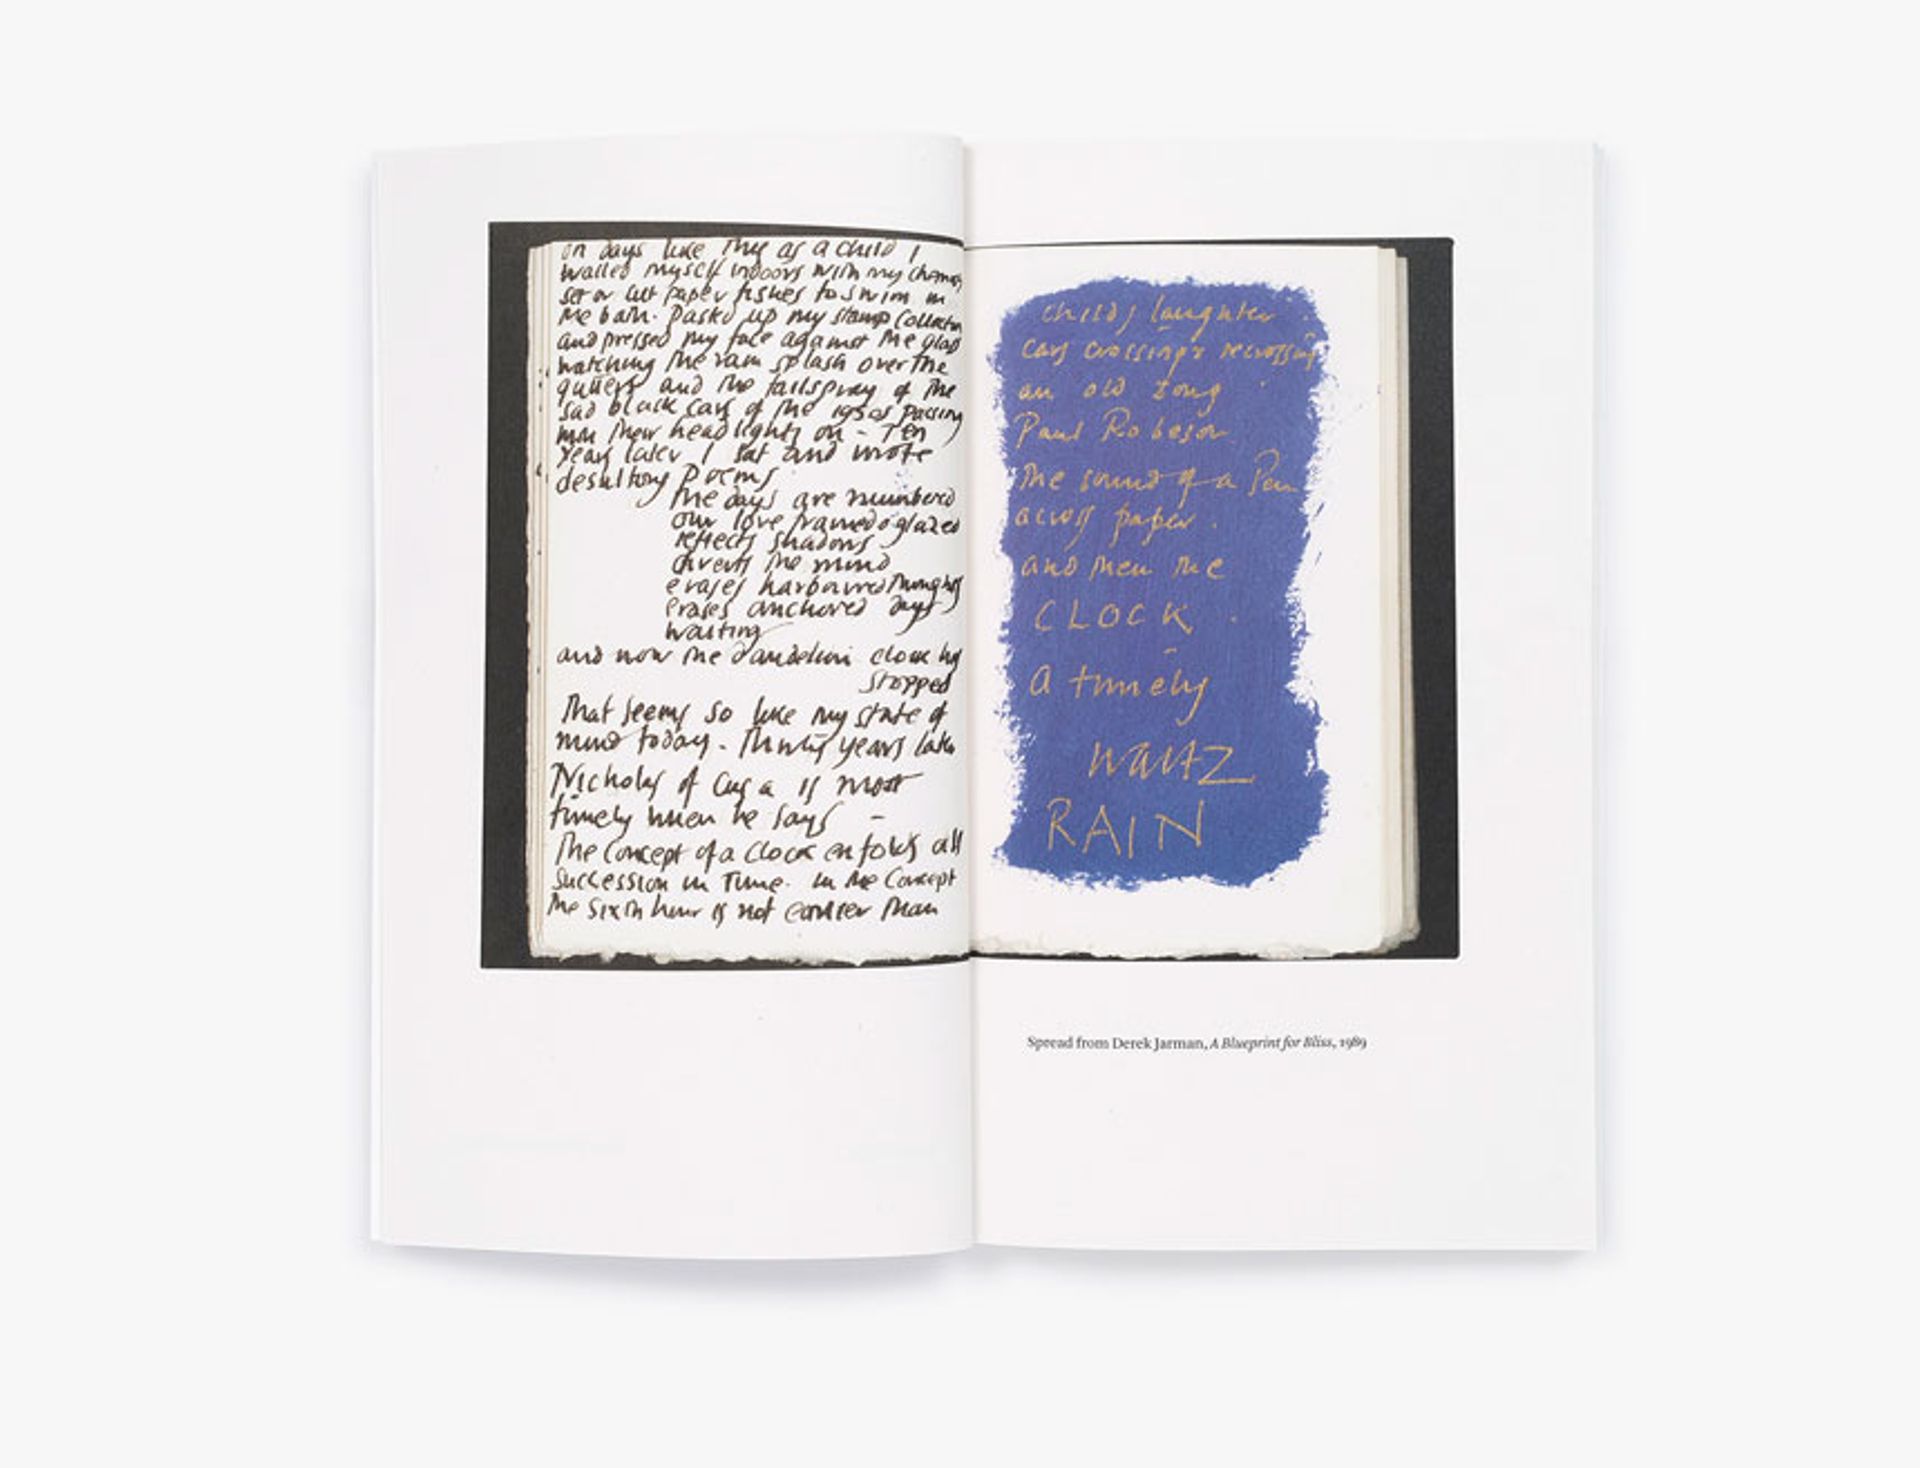 on days like this as a child I
walled myself indoors with my
set or cut paper fishes to swim in
the bath. Pasted up my stamp collection
and pressed my face against the glass
watching the rain splash over the
gutters and the tailspray of the
sad black cars of the 1950s passing
with their headlights on - Ten
years later I sat and wrote
desultory poems
the days are numbered
our love framed & glazed
reflects shadows
diverts the mind
erases harboured thoughts
erases anchored days
waiting
and now the dandelion clock has
stopped
That seems so like my state of
mind today. Thirty years later
Nicholas of Cusa is most
timely when he says -
The Concept of a Clock enfolds all
succession in Time. in the Concept
the sixth hour is not earlier than
childs laughter.
cars crossing & recrossing
an old song
Paul Robeson
the sound of a Pen
across paper.
and then the
CLOCK.
a timely
WALTZ
RAIN
Spread from Derek Jarman, A Blueprint for Bliss, 1989